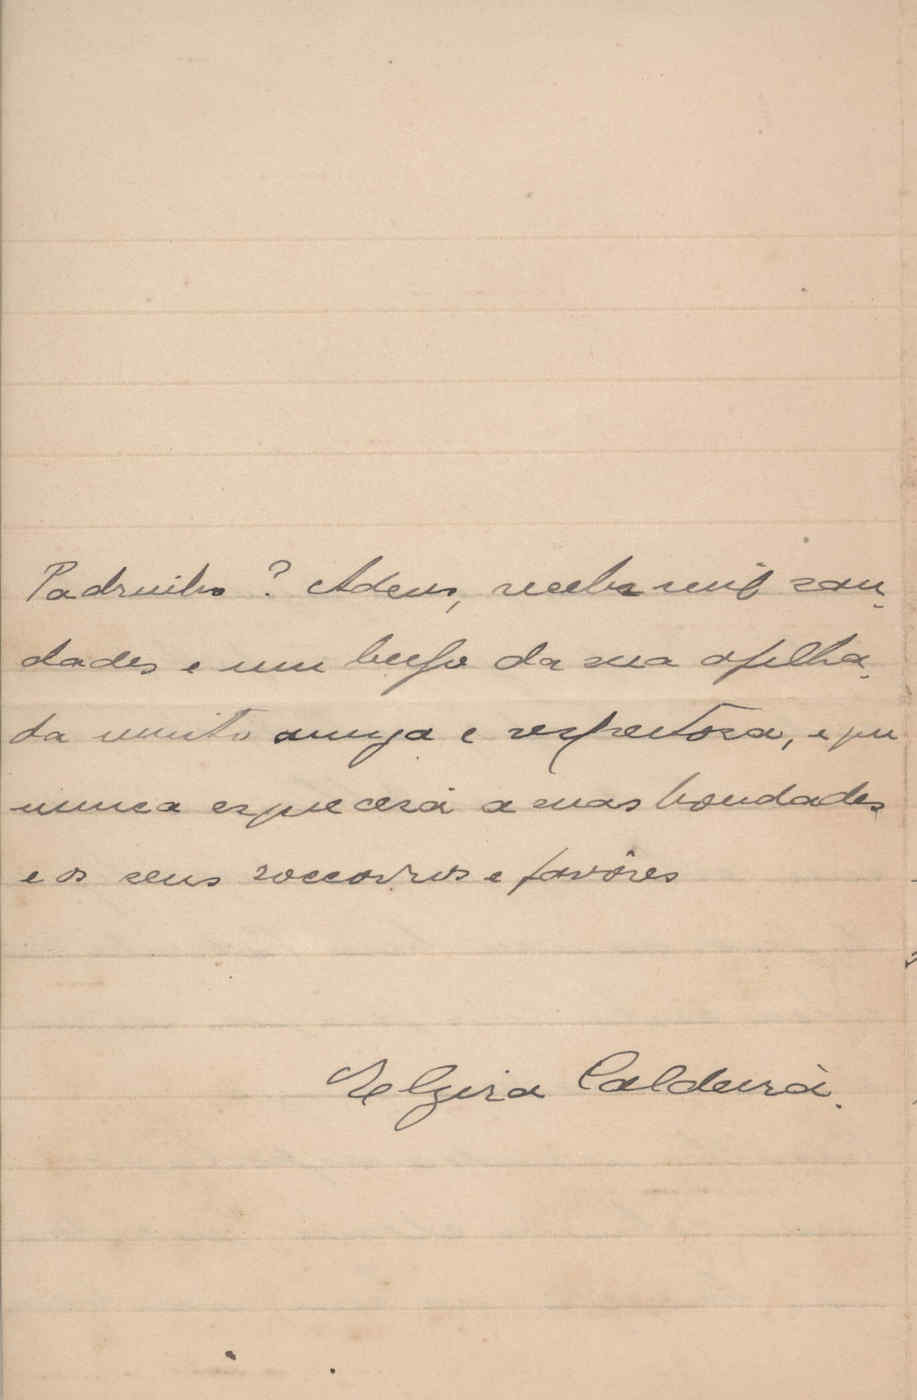 Padrinho? Adeus, receba mil sau-
dades e um beijo da sua afilha-
da muito amiga e respeitosa, e que
nunca esquecerá a suas bondades
e os seus soccorros e favôres
Elzira Caldeira.